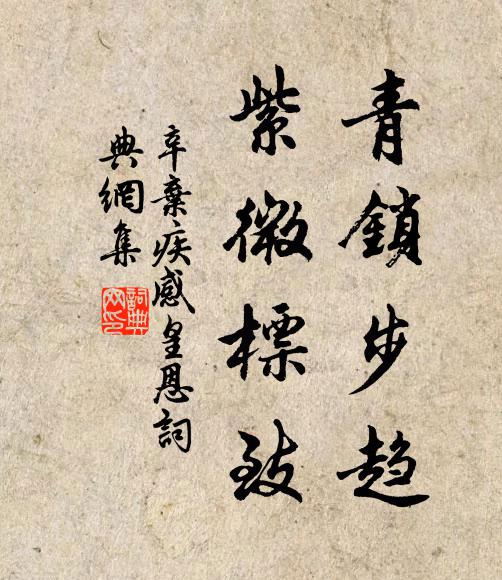 青鎖步趍
紫微標致
辛棄疾感皇恩詞
典網集
詞典
网印